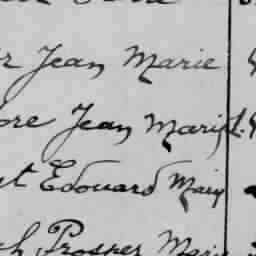 r Jean Marie
ore Jean Marie
et Edouard Mary
ch Prosper Marie